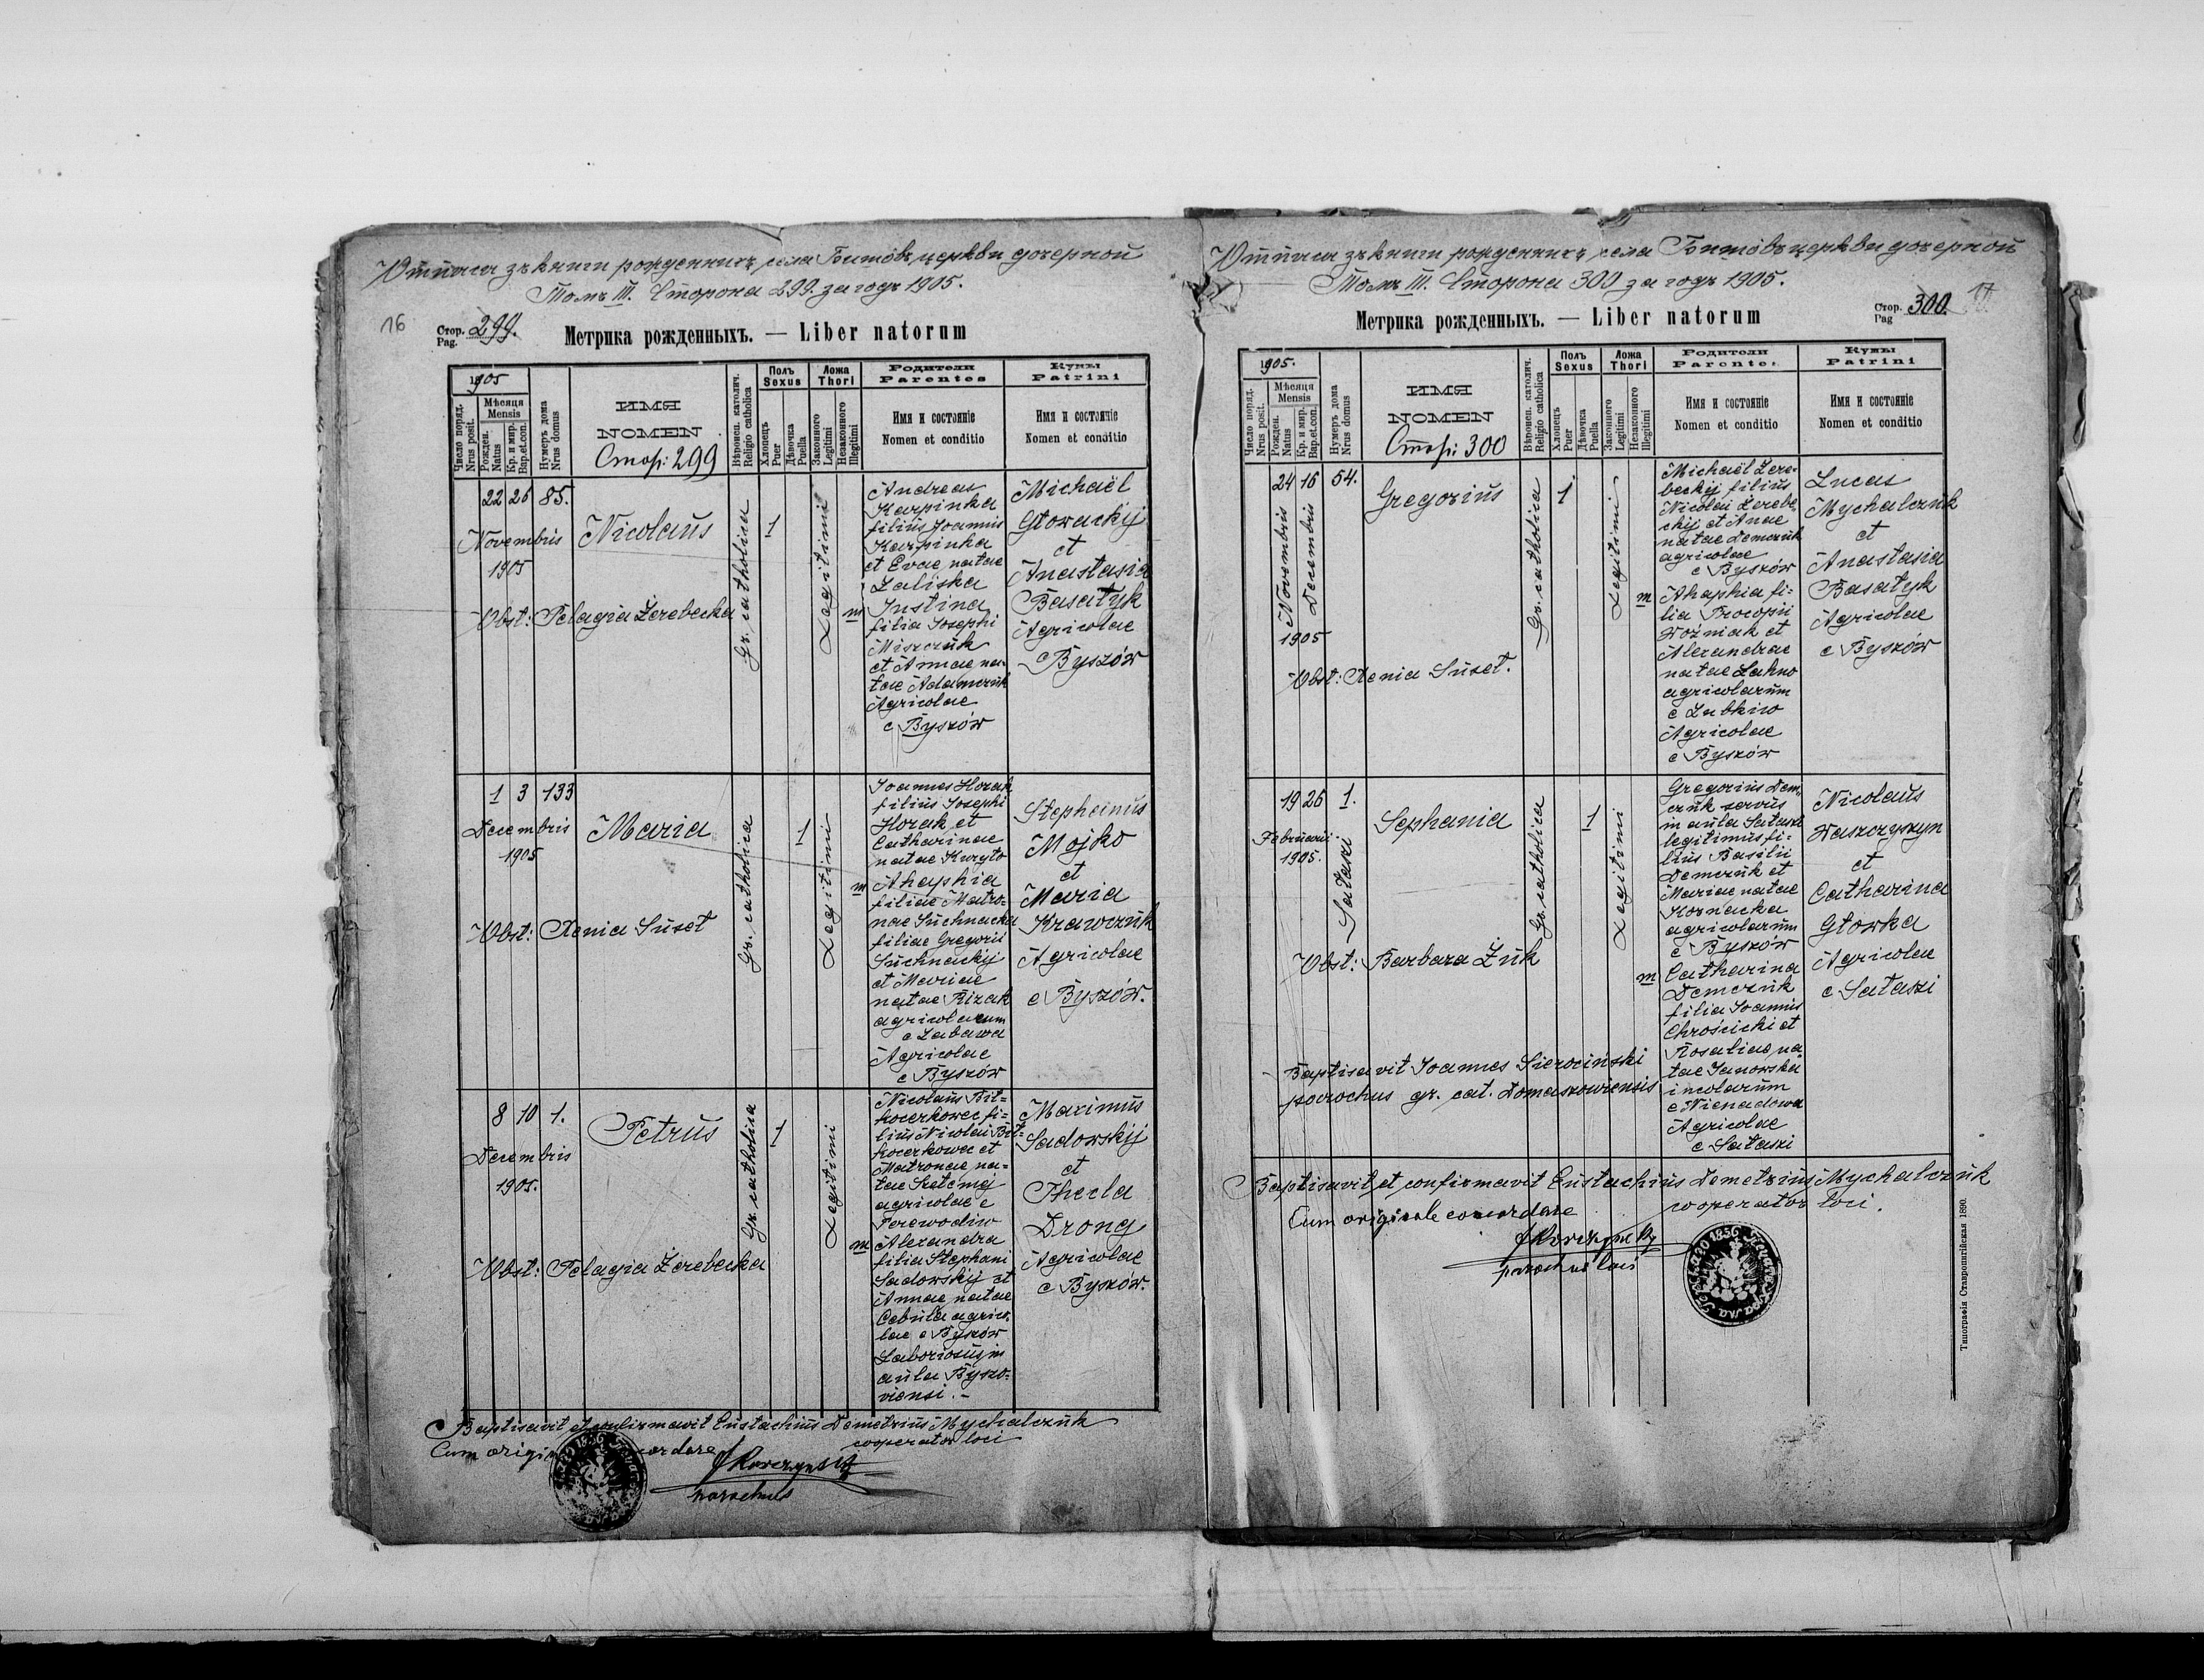 Отписъ зъ книги рожденныхъ села Бишôвъ церкви дочерной
Томъ III. Сторона 299. за годъ 1905.
16
Стор. 299.
Pag.
Метрика рожденныхъ. — Liber natorum
1905
Число поряд.
Nrus posit.
Мѣсяця
Mensis
Рожден.
Natus
Кр. и мир.
Bap.et.con.
Нумеръ дома
Nrus domus
ИМЯ
NOMEN
Стор: 299
Вѣроисп. католич.
Religio catholica
Полъ
Sexus
Хлопецъ
Puer
Дѣвочка
Puella
Ложа
Thori
Законного
Legitimi
Незаконного
Illegitimi
Родители
Parentes
Имя и состояніе
Nomen et conditio
Кумы
Patrini
Имя и состояніе
Nomen et conditio
22 26 85.
Novembris
1905
Nicolaus
Obst: Pelagia Żerebecka
Gr. catholica
1
Legitimi
m
Andreas
Karpinka
filius Joannis
Karpinka
et Evae natae
Zaliska
Justina
filia Josephi
Miszczuk
et Annae na-
tae Adamczuk
Agricolae
e Byszów
Michaël
Głowackij
et
Anastasia
Basatyk
Agricolae
e Byszów
1 3 133
Decembris
1905
Maria
Obst: Xenia Suset
Gr. catholica
1
Legitimi
m
Joannes Horak
filius Josephi
Horak et
Catharinae
natae Kuryło
Ahaphia
filiae Matro-
nae Suchnacka
filiae Gregorii
Suchnackij
et Mariae
natae Bizak
agricolarum
e Zabawa
Agricolae
e Byszów
Stephanus
Mojko
et
Maria
Krawczuk
Agricolae
e Byszów.
8 10 1.
Decembris
1905.
Petrus
Obst: Pelagia Żerebecka
Gr. catholica
1
Legitimi
m
Nicolaus Bił=
koczkowec fi=
lius Nicolai Bił=
koczkowec et
Matronae na=
tae
agricolae e
Perewodiw
Alexandra
filia Stephani
Sadowskij et
Annae natae
Cebula agrico-
lae e Byszów
Laboriosus in
aula Byszo=
viensi. –
Maximus
Sadowskij
et
Thecla
Drong
Agricolae
e Byszów.
Baptisavit et confirmavit Eustachius Demetrius Mychalczuk
cooperator loci
parochus
Отписъ зъ книги рожденныхъ села Бишôвъ церкви дочерной
Томъ III. Сторона 300 за годъ 1905.
Стор. 300.
Pag
17.
Метрика рожденныхъ. — Liber natorum
1905.
Число поряд.
Nrus posit.
Мѣсяця
Mensis
Рожден.
Natus
Кр. и мир.
Bap.et.con.
Нумеръ дома
Nrus domus
ИМЯ
NOMEN
Стор: 300
Вѣроисп. католич.
Religio catholica
Полъ
Sexus
Хлопецъ
Puer
Дѣвочка
Puella
Ложа
Thori
Законного
Legitimi
Незаконного
Illegitimi
Родители
Parentes
Имя и состояніе
Nomen et conditio
Кумы
Patrini
Имя и состояніе
Nomen et conditio
24 16 54.
Novembris
Decembris
1905
Gregorius
Obst: Xenia Suset.
Gr. catholica
1
Legitimi
m
Michaël Żere-
beckij filius
Nicolai Żerebe-
ckij et Anae
natae Demczuk
agricolae
e Byszów
Ahaphia fi-
lia Procopii
Woźniak et
Alexandrae
natae Łahno
agricolarum
e Zubkiw
Agricolae
e Byszów
Lucas
Mychalczuk
et
Anastasia
Basatyk
Agricolae
e Byszów
19 26 1.
Februarii
1905.
Sałaszi
Sephania
Obst: Barbara Żuk
Gr. catholica
1
Legitimi
m
Gregorius Dem-
czuk servus
in aula Sałaszi
legitimus fi-
lius Basilii
Demczuk et
Mariae natae
Kornacka
agricolarum
e Byszów
Catharina
Demczuk
filia Joannis
Chrościcki et
Rosaliae na-
tae Janowska
incolarum
e Nienadowa
Agricolae
e Sałaszi
Nicolaus
Waszczyszyn
et
Catharina
Głowka
Agricolae
e Sałaszi
Baptisavit Joannes Sierociński
parochus gr. cat. Domaszowiensis
Baptisavit et confirmavit Eustachius Demetrius Mychalczuk
cooperator loci.
Cum originale concordare
parochus loci
Типографія Ставропигійская 1890.